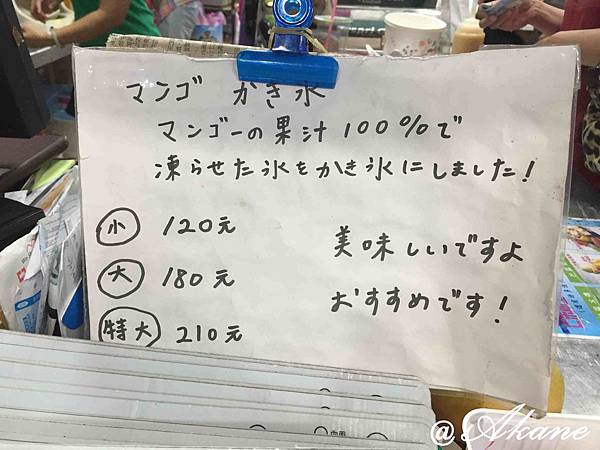 マンゴ かき氷
マンゴーの果汁100%で
凍らせた氷をかき氷にしました!
小 120元
大 180元
特大 210元
美味しいですよ
おすすめです!
@Akane